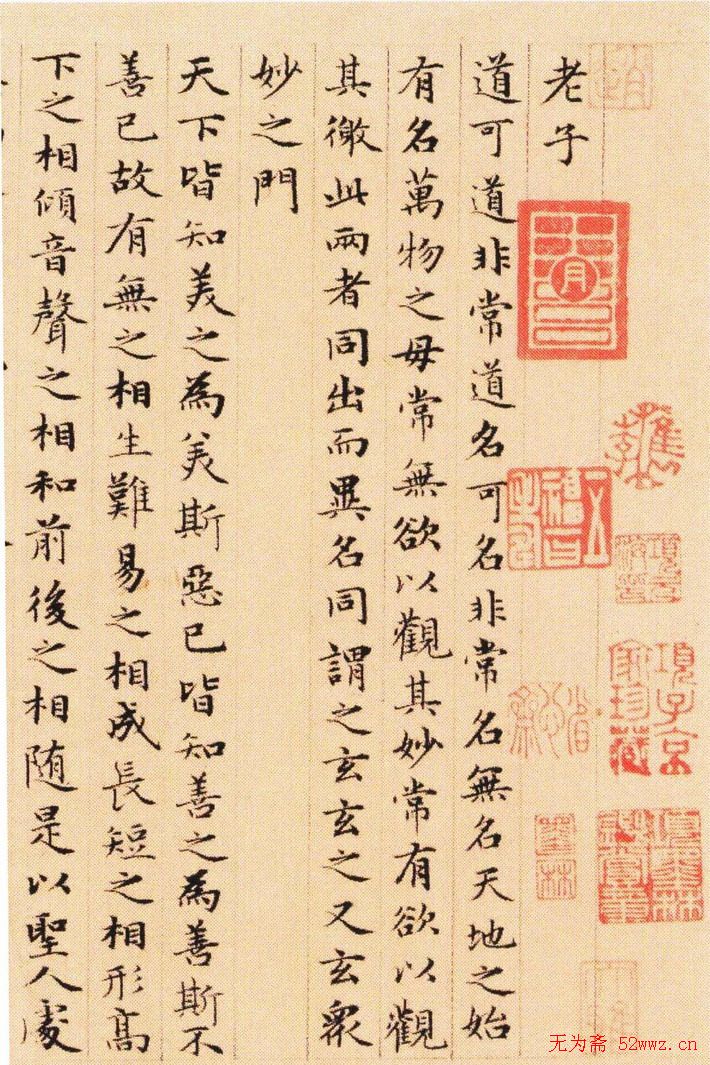 老子
道可道非常道名可名非常名無名天地之始
有名萬物之母常無欲以觀其妙常有欲以觀
其徼此兩者同出而異名同謂之玄玄之又玄衆
妙之門
天下皆知美之為美斯惡已皆知善之為善斯不
善已故有無之相生難易之相成長短之相形高
下之相傾音聲之相和前後之相随是以聖人處
項子京
家珍藏
墨林
无为斋 52wwz.cn